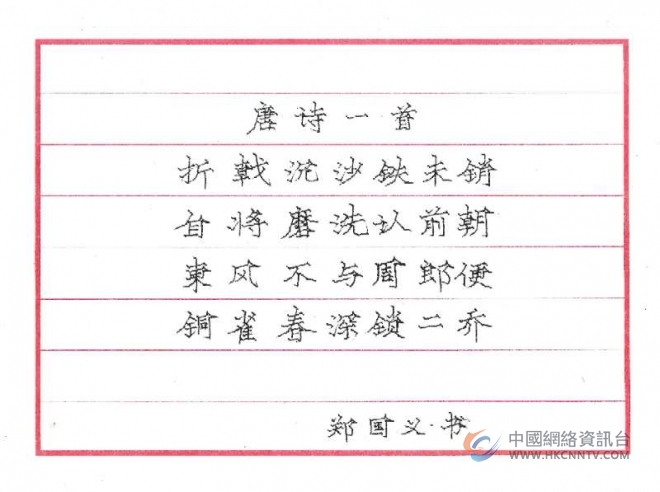 唐诗一首
折戟沉沙鉄未銷
自将磨洗认前朝
東风不与周郎便
銅雀春深鎖二乔
郑国义·书
中國網絡資訊台
WWW.HKCNNTV.COM